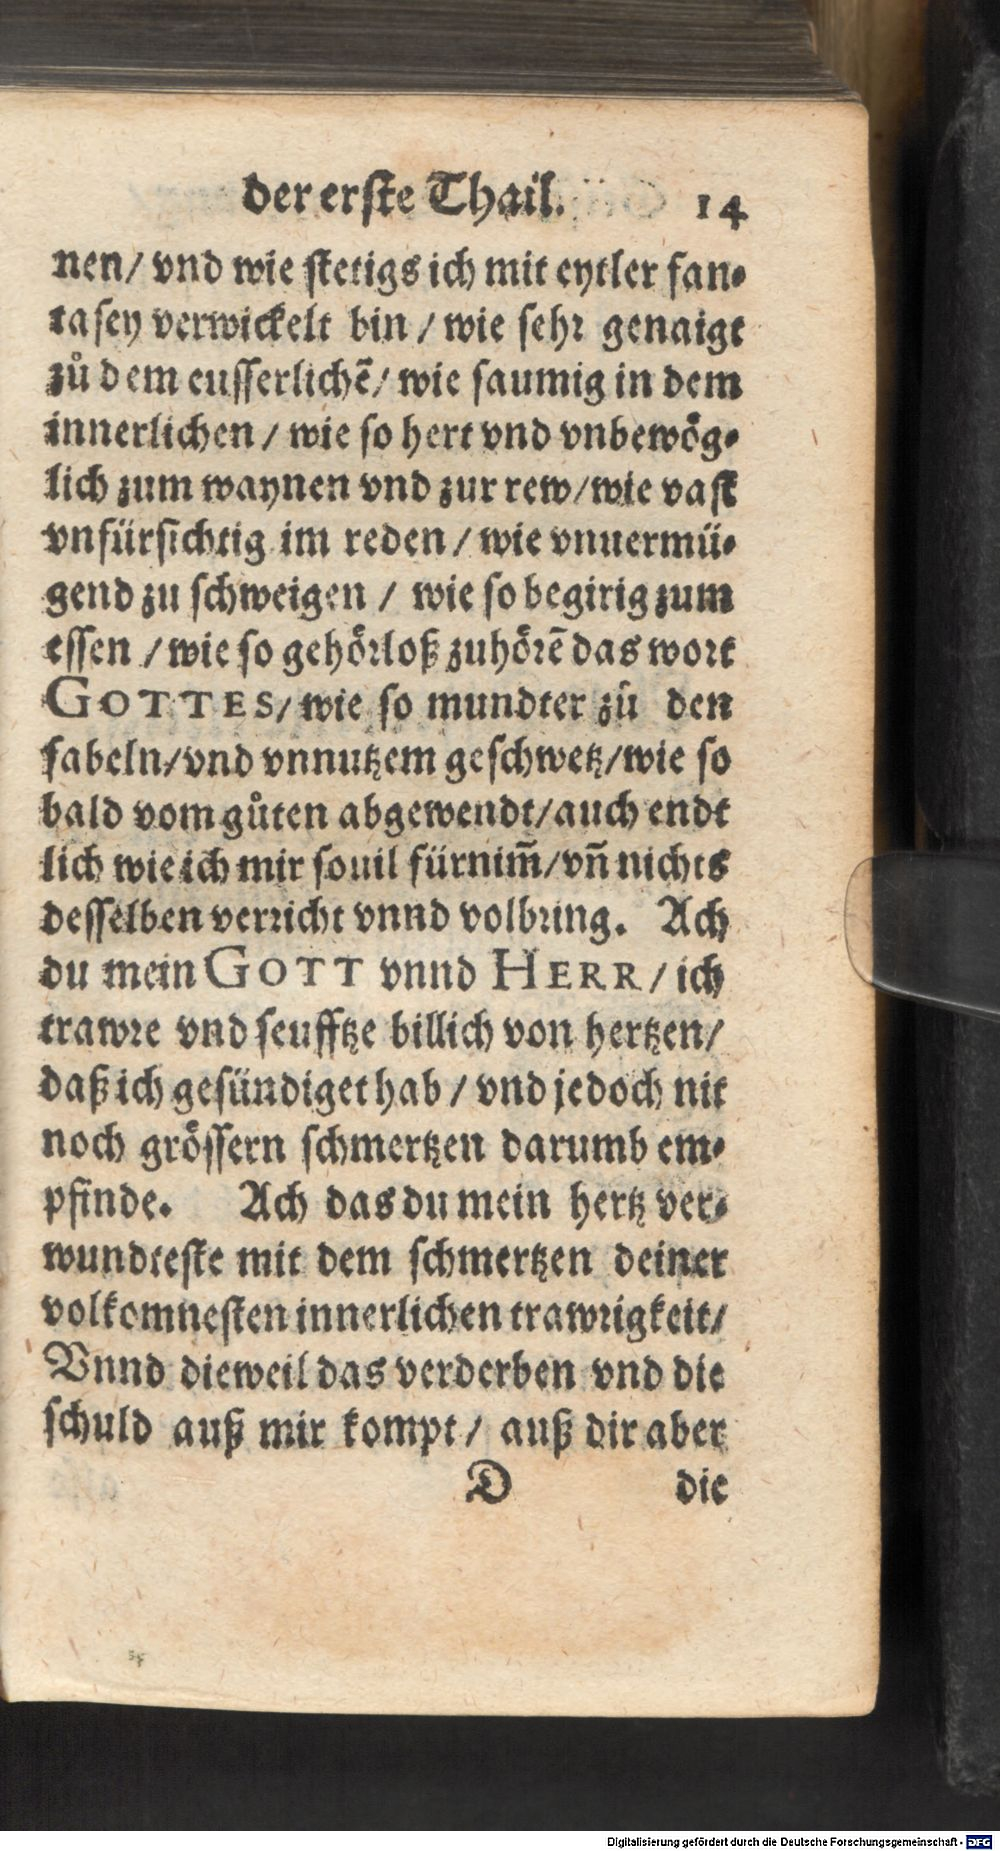 der erste Thail. 14
nen/ vnd wie stetigs ich mit eytler fan-
tasey verwickelt bin / wie sehr genaigt
zů dem eusserlichẽ/ wie saumig in dem
innerlichen / wie so hert vnd vnbewög-
lich zum waynen vnd zur rew/wie vast
vnfürsichtig im reden / wie vnuermü-
gend zu schweigen / wie so begirig zum
essen / wie so gehörloß zuhörẽ das wort
GOTTES/ wie so mundter zů den
fabeln/vnd vnnutzem geschwetz/wie so
bald vom gůten abgewendt/auch endt
lich wie ich mir souil fürnim̃/vñ nichts
desselben verricht vnnd volbring. Ach
du mein GOTT vnnd HERR / ich
trawre vnd seufftze billich von hertzen/
daß ich gesündiget hab / vnd jedoch nit
noch grössern schmertzen darumb em-
pfinde. Ach das du mein hertz ver-
wundteste mit dem schmertzen deiner
volkomnesten innerlichen trawrigkeit/
Vnnd dieweil das verderben vnd die
schuld auß mir kompt / auß dir aber
D die
Digitalisierung gefördert durch die Deutsche Forschungsgemeinschaft - DFG